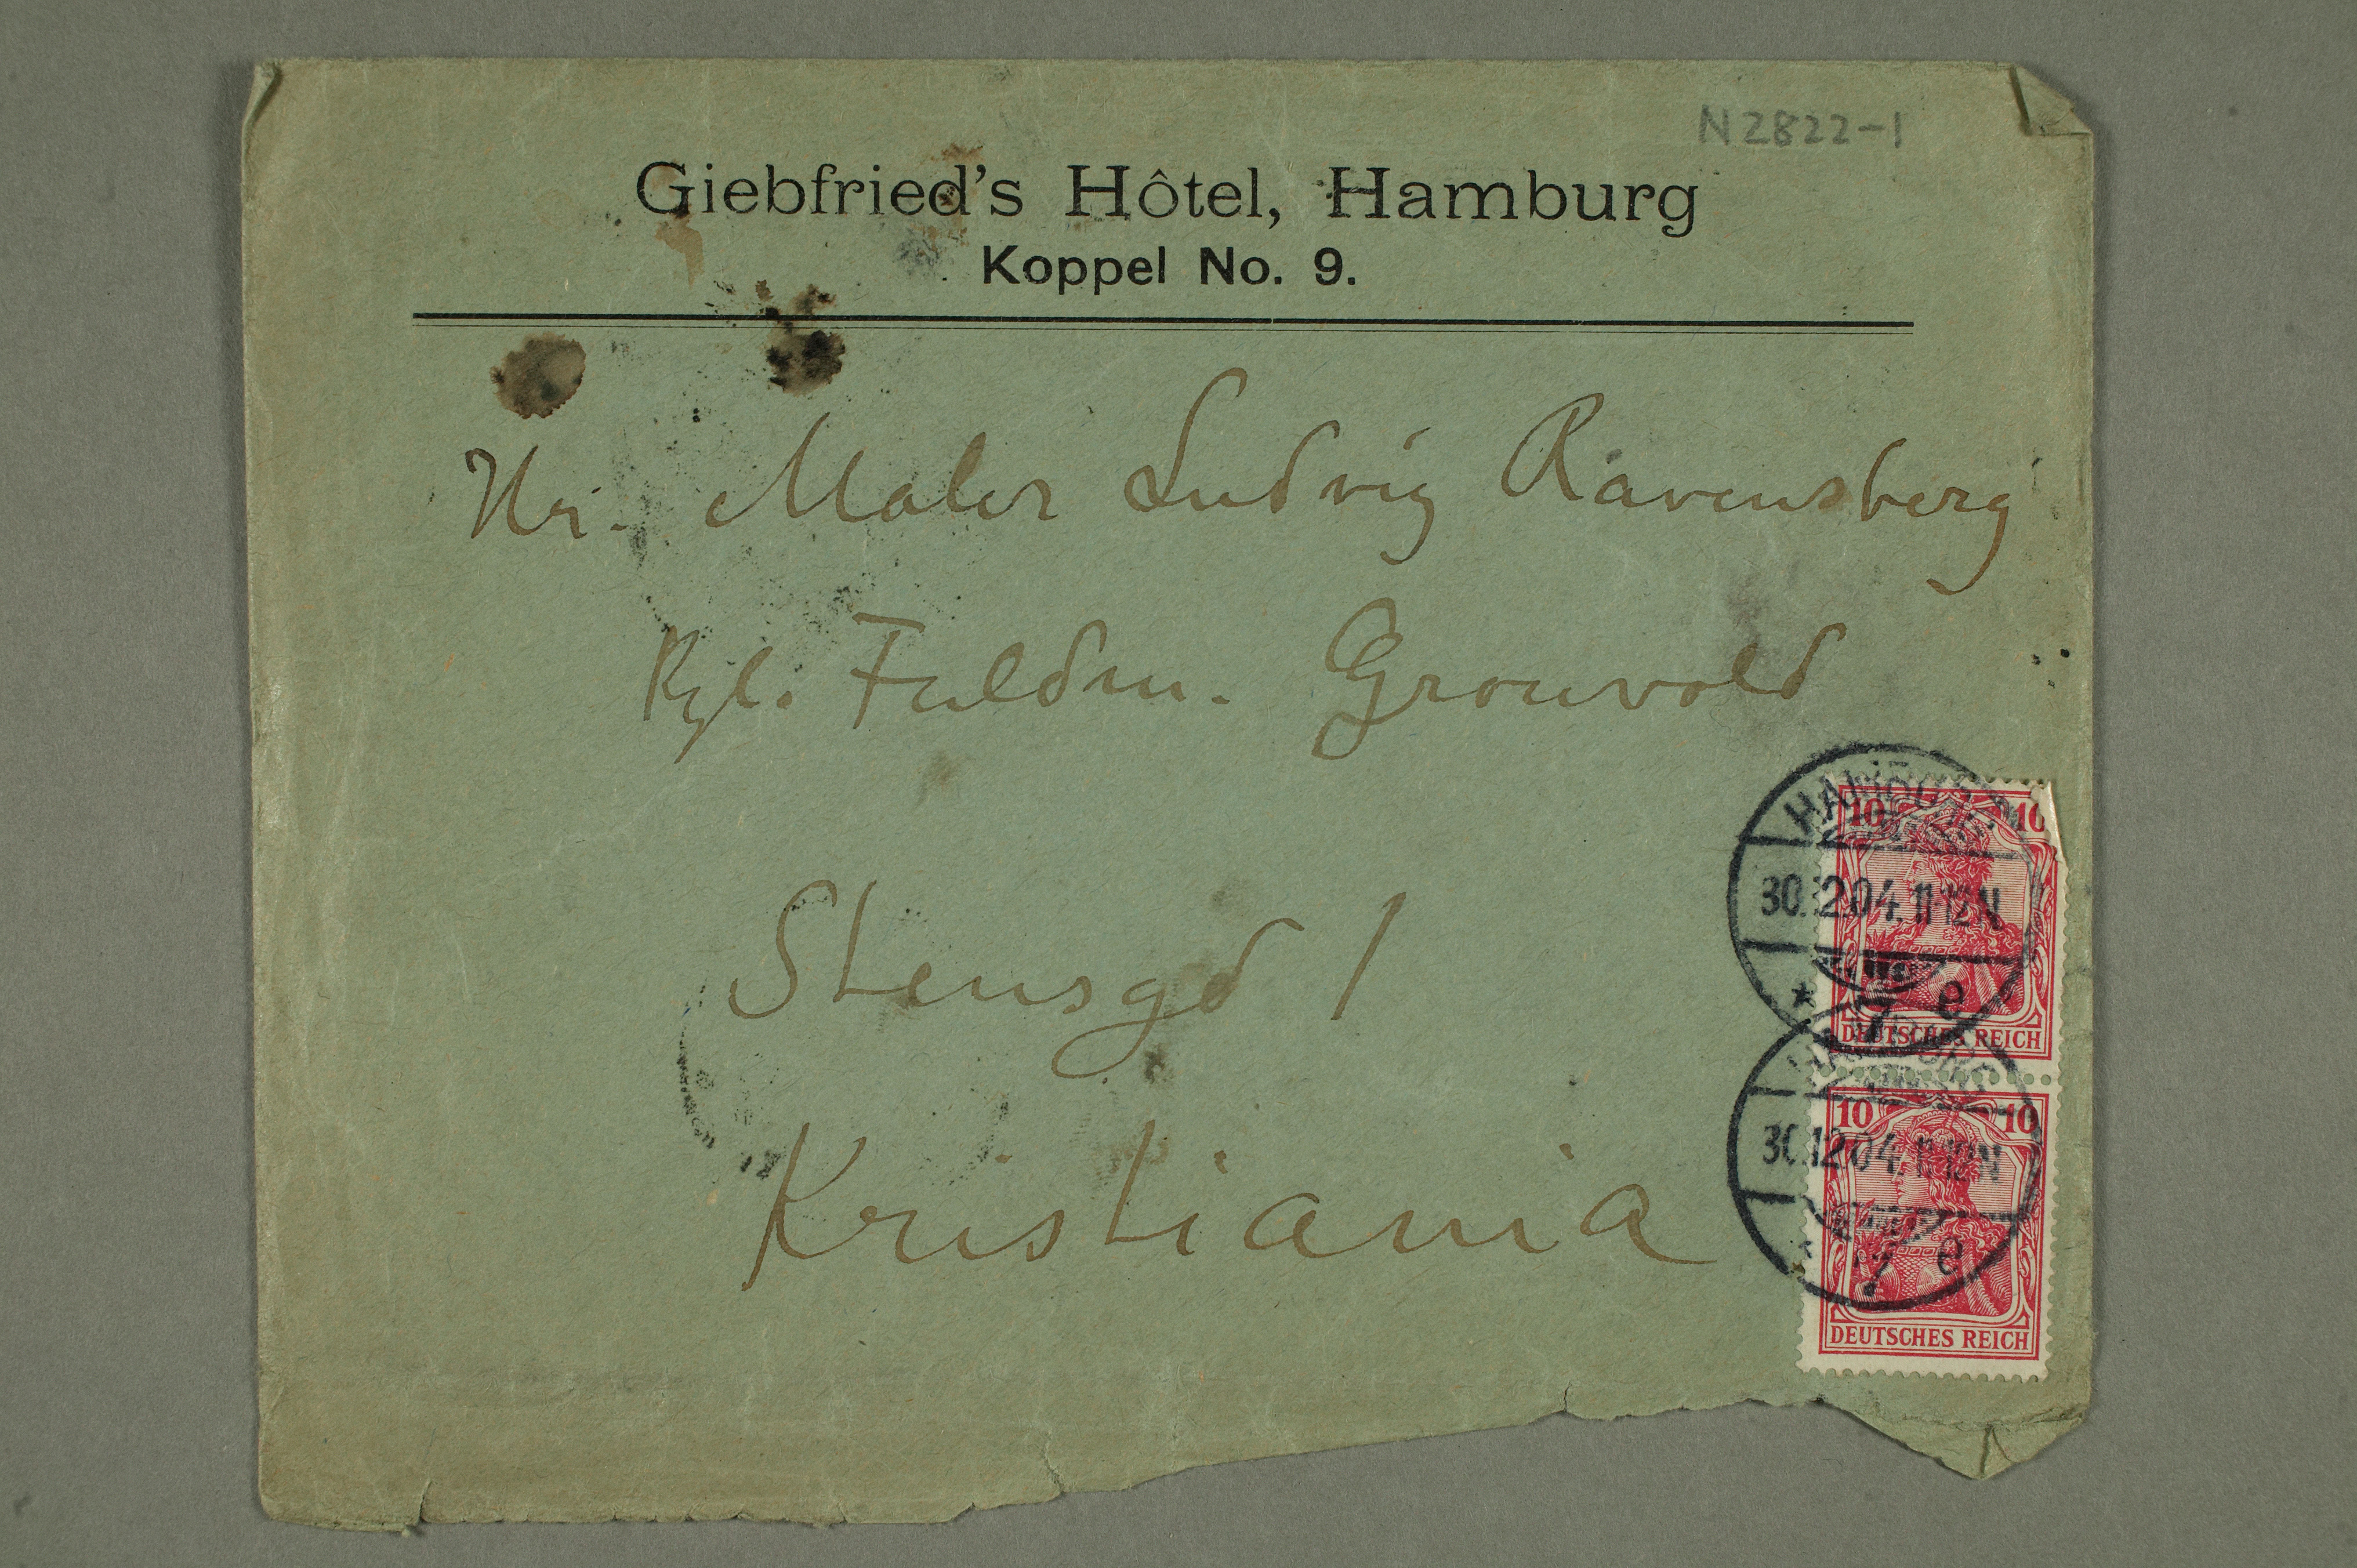 N 2822-1
Giebfried's Hôtel, Hamburg
Koppel No. 9.
Hr. Maler Ludvig Ravensberg
Kgl. Fuldm. Gronvold
Stensgd 1
Kristiania
HAMBURG
10 10
30.12.04. 11-12N
* 7 e
DEUTSCHES REICH
HAMBURG
10 10
30.12.04. 11-12N
* 7 e
DEUTSCHES REICH